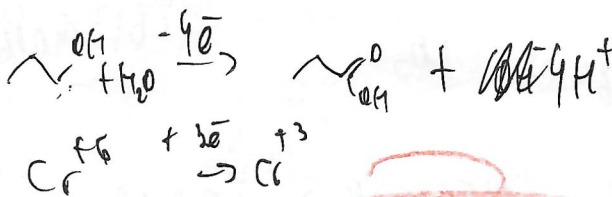 OH + H₂O -4ē → O OH + 4H⁺
Cr⁺⁶ + 3ē → Cr⁺³